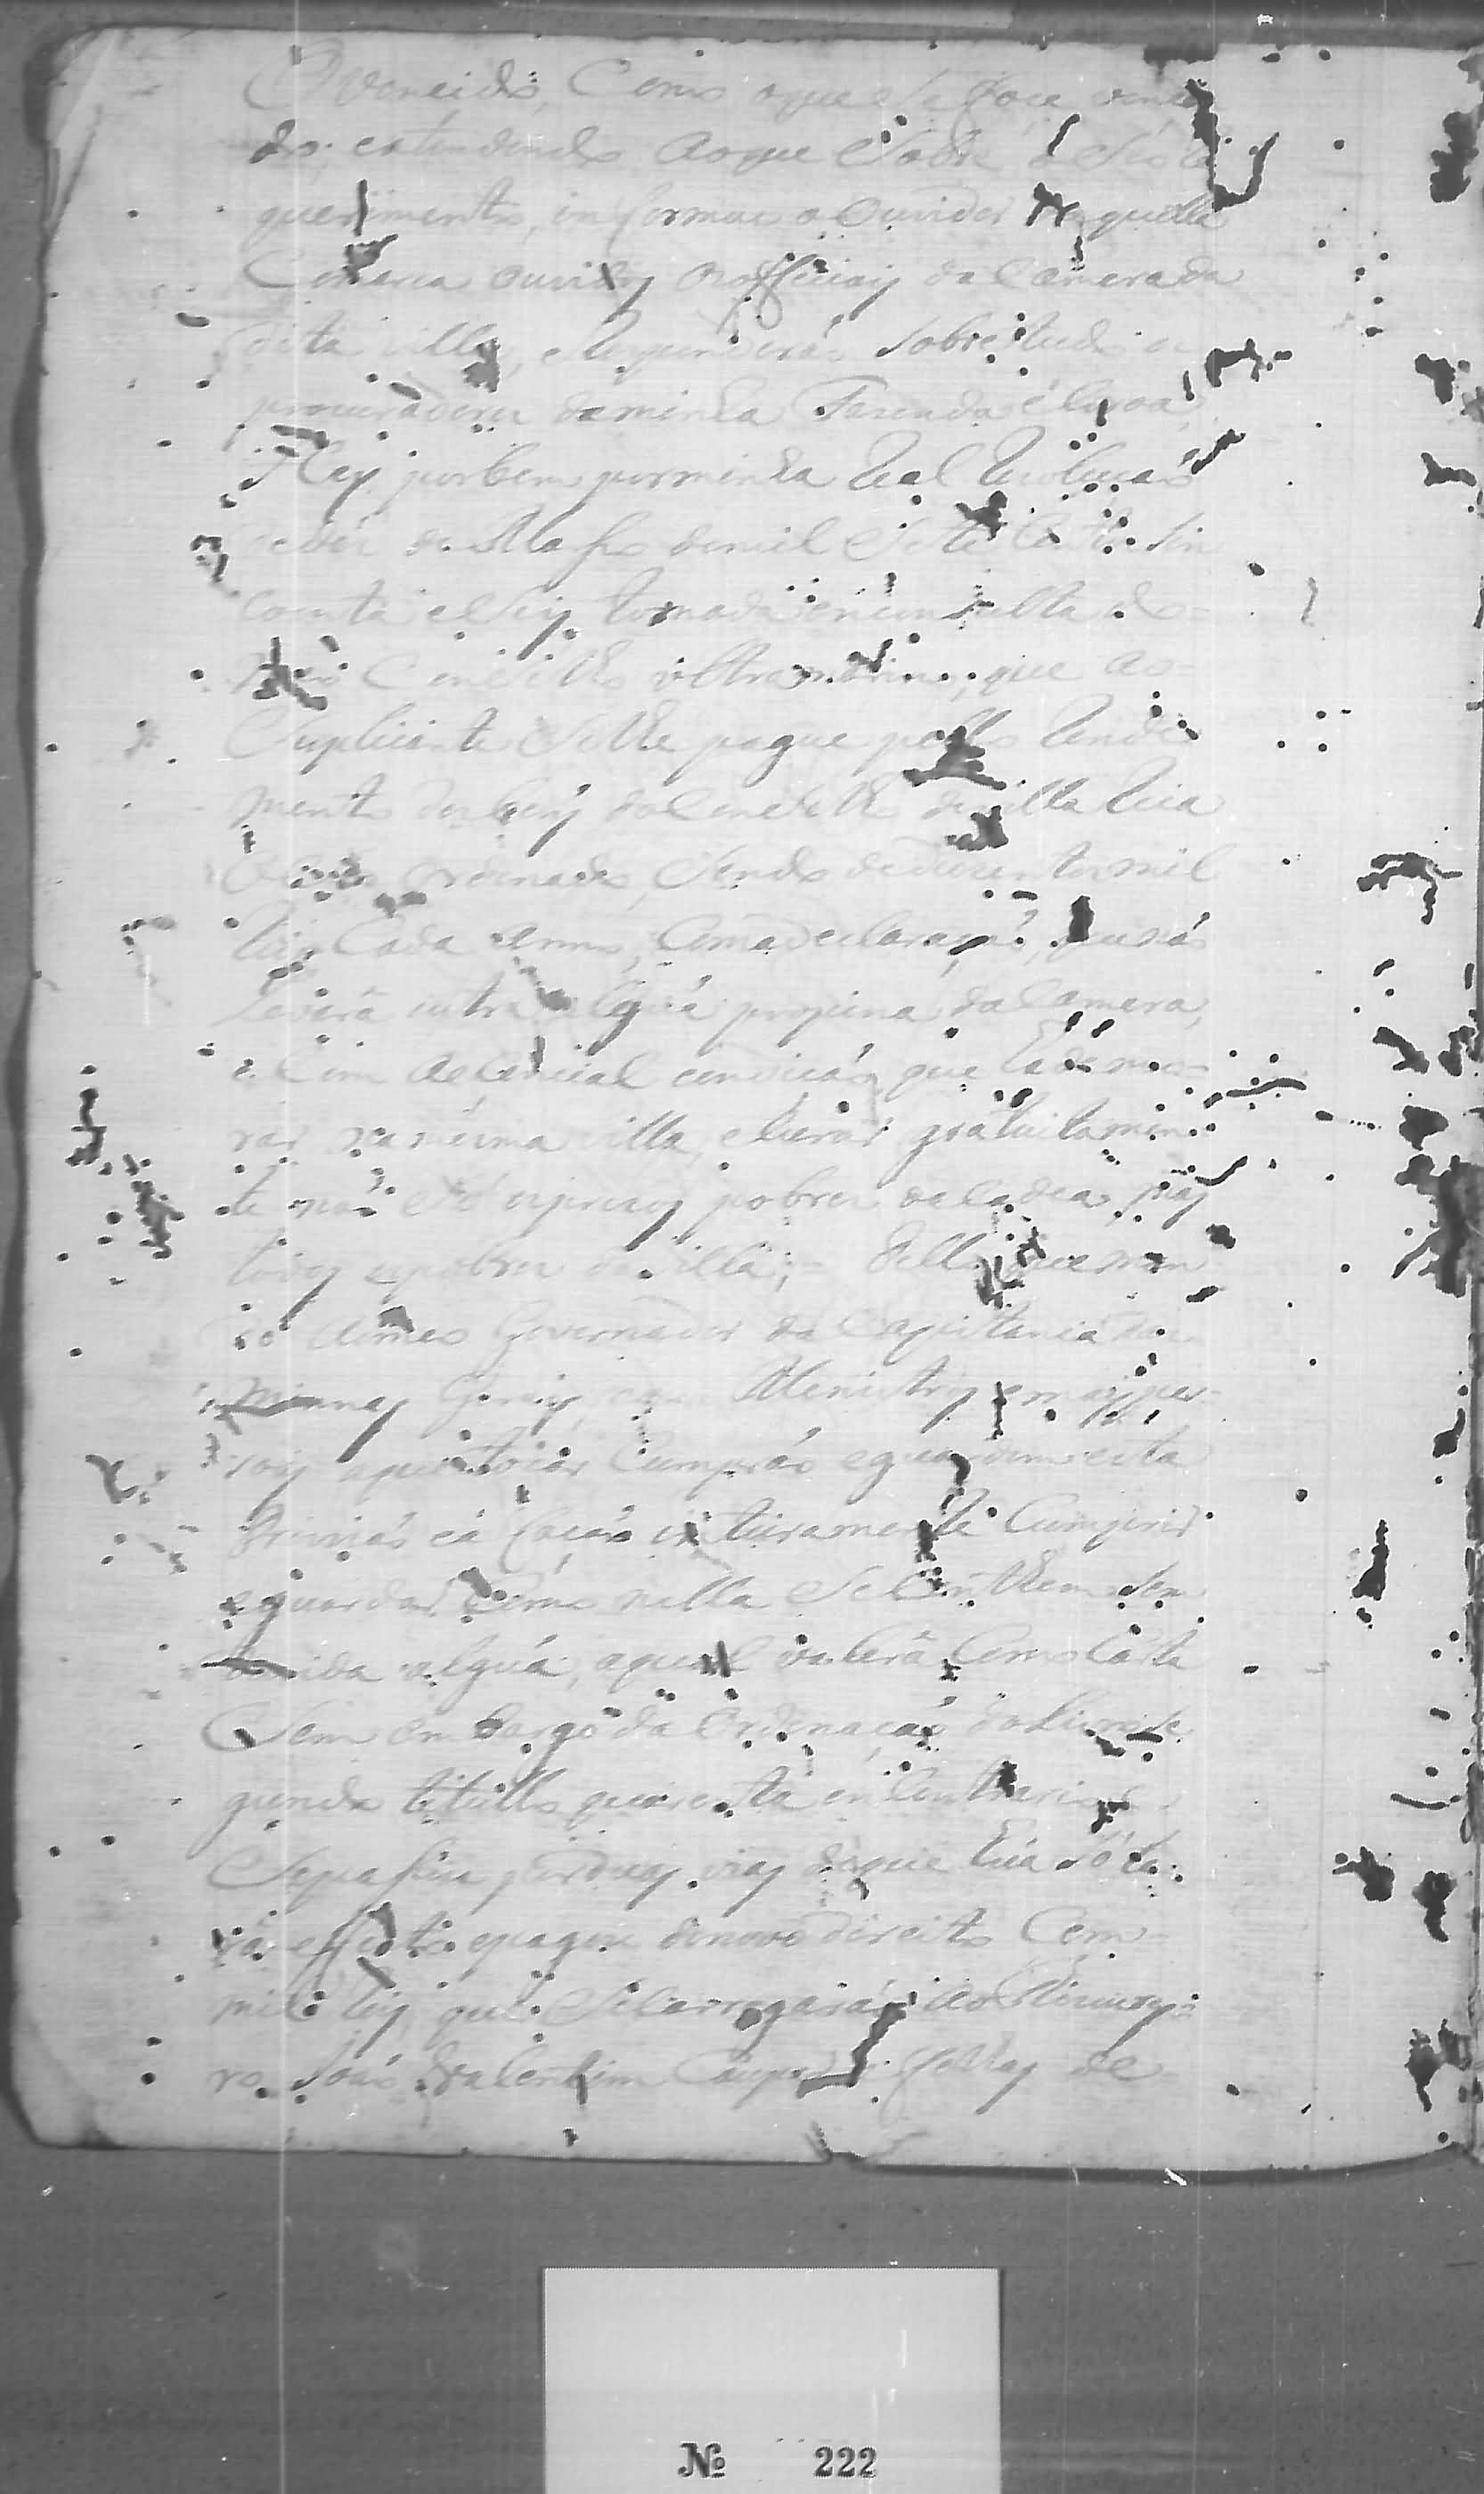 O vencido, Como o que se fose vencen
do, entendendo ao que sobre o seo re
querimento, informou o Ouvidor daquella
Comarca ouvindo os officiaes da Camera da
dita villa, e Responderão sobre tudo os
procuradores da minha Fazenda e Coroa,
Hey por bem por minha Real Rezolução
de des de Março de mil e sete Centos sin
coenta e seis tomada em consulta do
meo Conselho ultramarino, que ao
Suplicante se lhe pague pello Rendi
mento dos bens do Conselho de villa Rica
ordenado, sendo de duzentos mil
reis Cada anno, Com a declaração, que não
levará outra algũa propina da Camera,
e Com a especial condição, que ha de mo
rar na mesma villa, e Curar gratuitamen
te não só os prezos pobres da Cadea, mas
todos os pobres da villa; Pello que man
do ao meo Governador da Capitania das
Minnas Geraes, e mais Menistros e mais pes
soas a que tocar Cumprão e guardem esta
Provizão e a fação inteiramente Cumprir
e guardar Como nella se Conthem sem
duvida algũa, a qual valerá Como Carta
Sem embargo da Ordenação do Livro se
gundo titullo quarenta em Contrario e
Se pasou por duas vias de que hũa só te
rá effeito e pagou de novo direito Cem
mil reis, que se Carregarão ao Thizourey
ro João Valentim Caupers a folhas de
№ 222